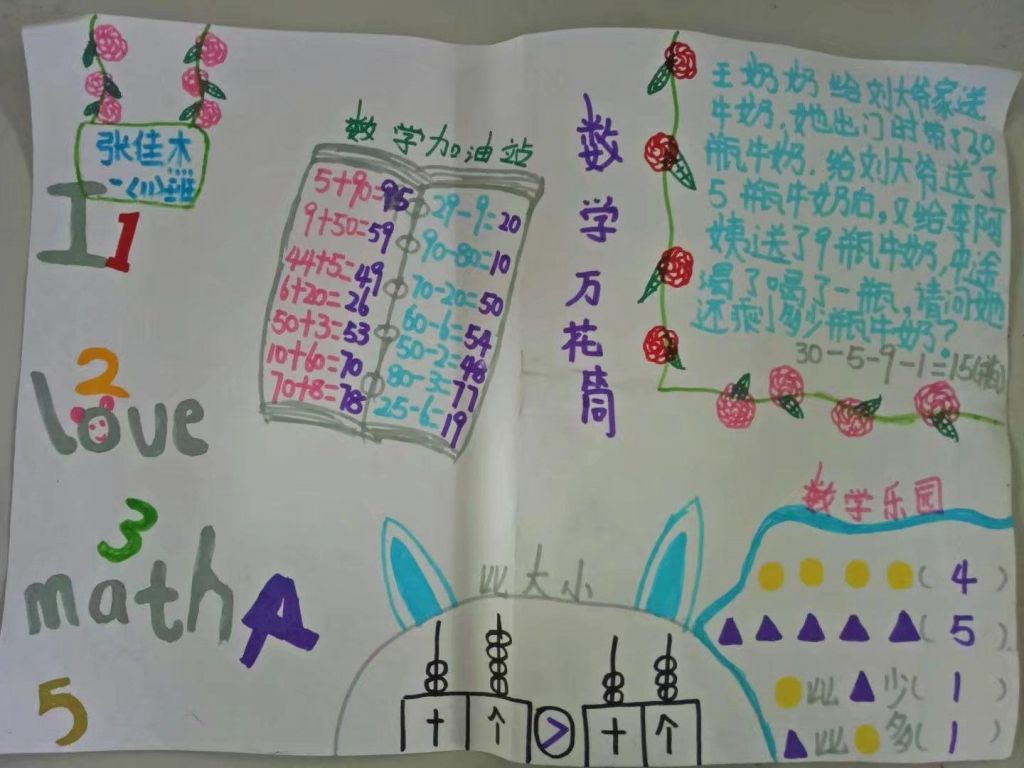 张佳木
一(11)班
I 1
2
love
3
math 4
5
数学加油站
5+90=95
9+50=59
44+5=49
6+20=26
50+3=53
10+60=70
70+8=78
29-9=20
90-80=10
70-20=50
60-6=54
50-2=48
80-3=77
25-6=19
数学万花筒
王奶奶给刘大爷家送
牛奶,她出门时带了30
瓶牛奶,给刘大爷送了
5瓶牛奶后,又给李阿
姨送了9瓶牛奶,中途
渴了喝了一瓶,请问她
还剩多少瓶牛奶?
30-5-9-1=15(瓶)
比大小
十 个 > 十 个
数学乐园
( 4 )
( 5 )
比 少( 1 )
比 多( 1 )